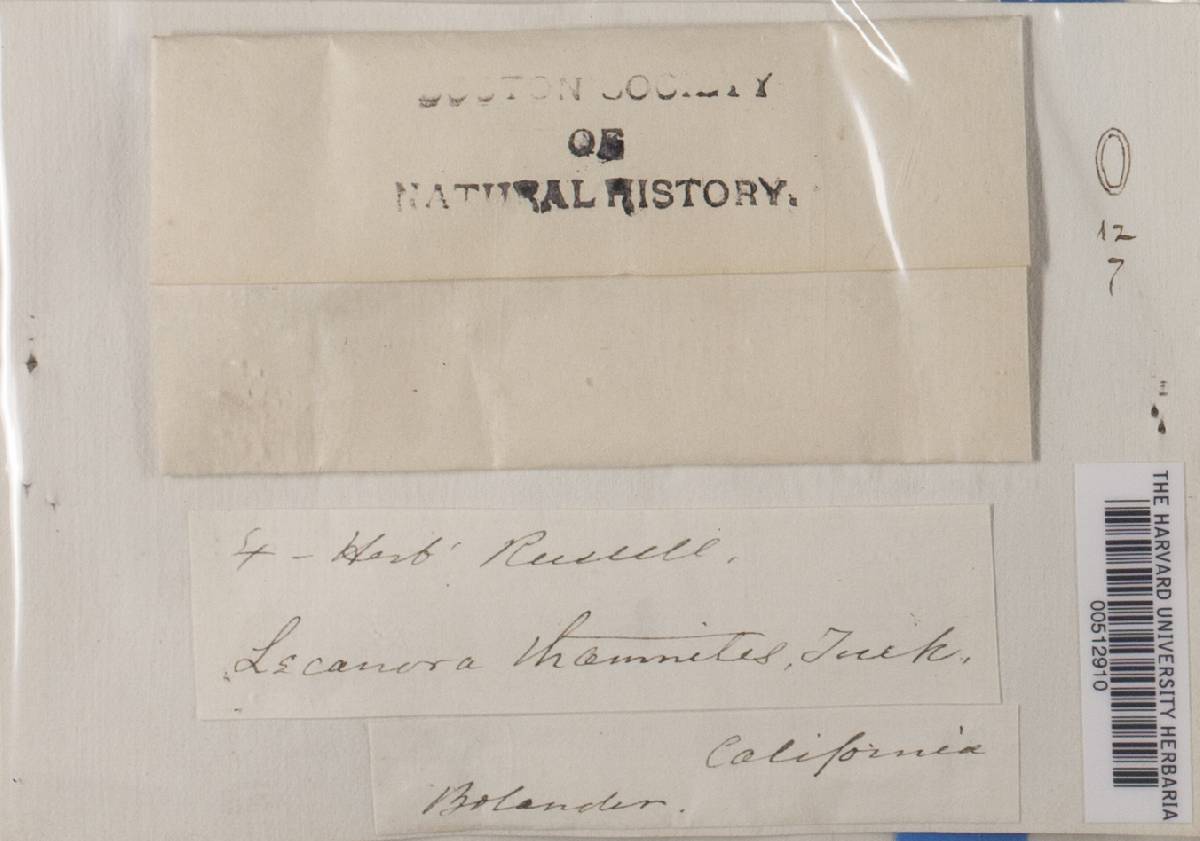 BOSTON SOCIETY
OF
NATURAL HISTORY.
12
7
Herb' Russell.
Lecanora thamnites, Tuck.
California
Bolander.
THE HARVARD UNIVERSITY HERBARIA
00512910